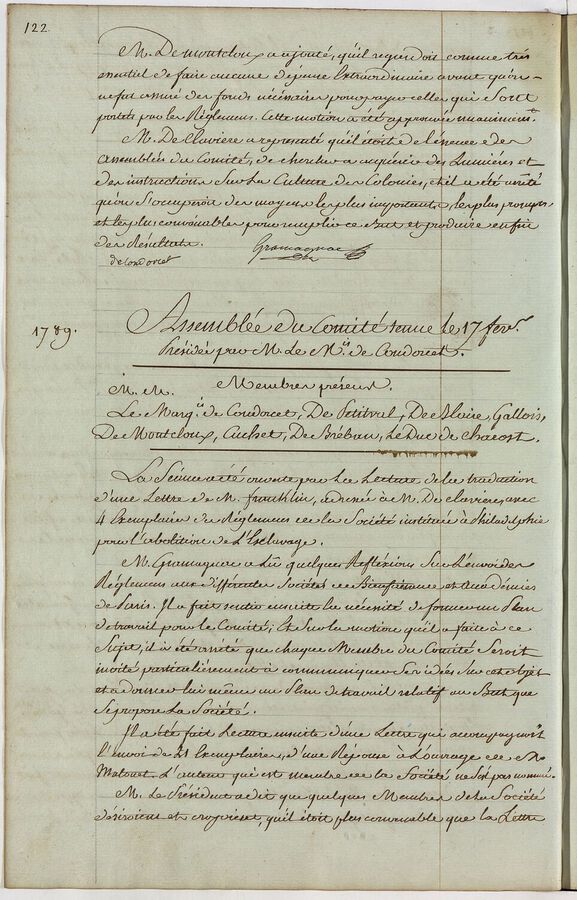 122
M. De montcloux a ajouté, qu'il regardoit comme très
essentiel de faire aucune dépense Extraordinaire avant qu'on
ne fut assuré des fonds nécessaires pour payer celles qui sont
portées par les Réglemens. Cette motion a été approuvée unanimemt.
M. De Claviere a representé qu'il étoit de l'essence des
assemblés du Comité, de chercher a acquérir des Lumiéres et
des instructions sur La Culture des Colonies, et il a été arrêté
qu'on s'occuperoit des moyens les plus importants, les plus prompts
et les plus convenables pour remplir ce but et produire enfin
des Résultats.
de Condorcet
Gramagnac
1789.
Assemblée du Comité tenue le 17 fevr.
Présidée par M. Le Mis. de Condorcet.
M. M. Membres présens.
Le Marq.is de Condorcet, De Petitval, De Blaire, Gallois,
De Montcloux, Cuchet, De Bréban, Le Duc de Charost.
La Séance a été ouverte par La Lecture de la traduction
d'une Lettre de M. franklin, adressée à M. De claviere, avec
4 Exemplaires des Réglemens de la Société instituée à Philadelphie
pour l'abolition de L'Esclavage.
M. Gramagnac a Lu quelques Refléxions Sur L'envoi des
Réglemens aux differentes Sociétés de Bienfaisance et Académies
de Paris. Il a fait sentir ensuite la nécessité de former un Plan
de travail pour le Comité; Et Sur la motion qu'il a faite à ce
Sujet, il a été arrêté que chaque Membre du Comité Seroit
invité particulièrement à communiquer Ses idées Sur cet objet
et a donner lui même un Plan de travail relatif au But que
Se propose La Société.
Il a été fait Lecture ensuite d'une Lettre qui accompagnoit
l'envoi de 21 Exemplaires, d'une Réponse à L'ouvrage de M.
Malouet. L'auteur qui est membre de la Société ne s'est pas nommé.
M. Le Président a dit que quelques Membres de la Société
désiroient et croyoient, qu'il étoit plus convenable que la Lettre